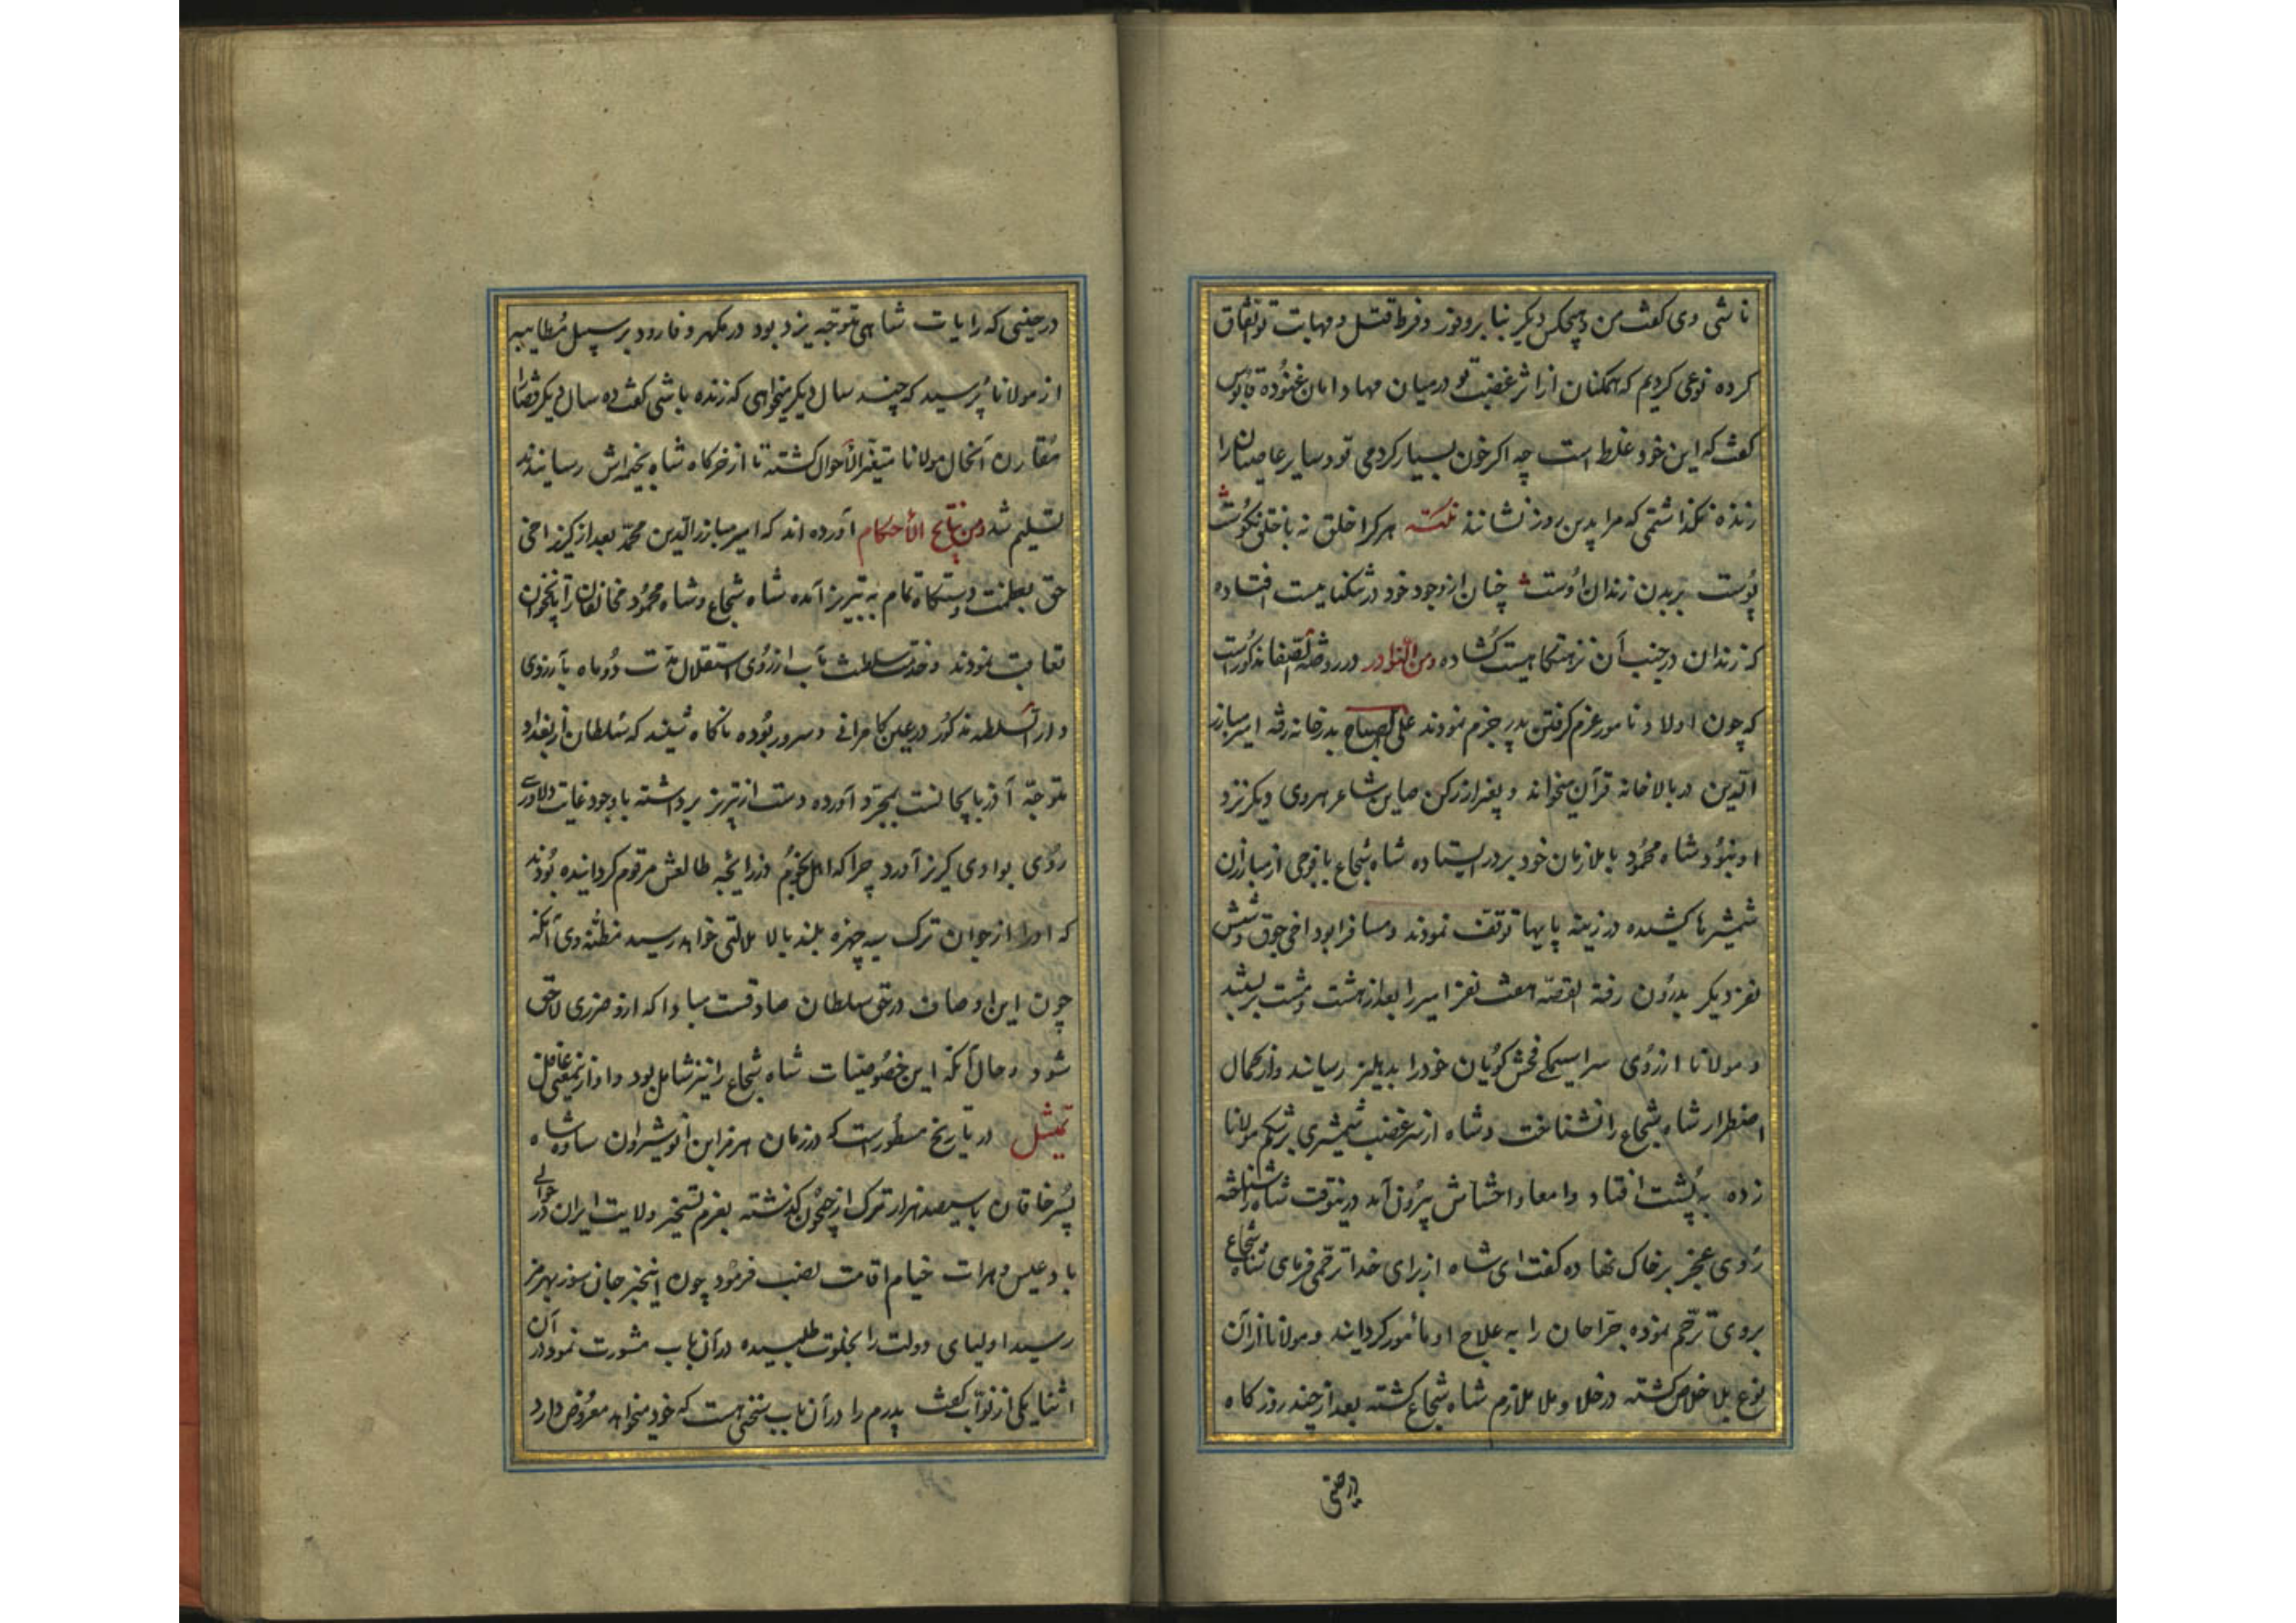 ناشی وی گفت من و هیچکس دیگر بنا بر وفور و فرط قتل و مهابت تو اتفاق
کرده نوعی کردیم که همکنان از اثر غضبت تو در میان مهاد امان غنوده قابوس
گفت که این خود غلط است چه اگر خون بسیار کردمی تو و سایر عاصیان را
زنده نگذاشتمی که مرا بدین روز نشانند نکته هر کرا خلق نه با خلق نکوست
پوست بر بدن زندان اوست چنان از وجود خود در شکنجایست افتاده
که زندان در جنب آن نزهتگاهیست گشاده ومن النوادر در روضة الصفا مذکور است
که چون اولاد نامور عزم گرفتن پدر جزم نمودند علی الصباح بدر خانه رفته امیر مبارز
الدین در بالاخانه قرآن میخواند و بغیر از رکن صاین شاعر هروی دیگر نزد
او نبود شاه محمود با ملازمان خود بر در ایستاده شاه شجاع با فوجی از مبارزان
شمشیرها کشیده در زینه پایها توقف نمودند و مسافر ابوداخی جوق و شش
نفر دیگر بدرون رفته القصه هفت نفر امیر را بعد از هشت و مشت بر بستند
و مولانا از روی سراسیمگی فحش گویان خود را بدهلیز رسانید و از کمال
اضطرار شاه شجاع را نشناخت و شاه از سر غضب شمشیری بر شکم مولانا
زده به پشت افتاد و امعا و احشاش بیرون آمد درینوقت شاه را شناخته
روی عجز بر خاک نهاده گفت ای شاه از برای خدا ترحمی فرمای شاه شجاع
بروی ترحم نموده جراحان را به علاج او مأمور گردانید و مولانا از آن
نوع بلا خلاص گشته در خلا و ملا ملازم شاه شجاع گشته بعد از چند روز گاه
در حینی
در حینی که رایات شاهی متوجه یزد بود در مکهر و فارود بر سبیل مطایبه
از مولانا پرسید که چند سال دیگر میخواهی که زنده باشی گفت ده سال دیگر قضا را
مقارن آنحال مولانا متغیر الأحوال گشته تا از خرگاه شاه بخیمه اش رسانیدند
تسلیم شد ومن نتایج الأحکام آورده اند که امیر مبارز الدین محمد بعد از گریز اخی
جق بعظمت و دستگاه تمام به تبریز آمده شاه شجاع و شاه محمود مخالفان را تا نخجوان
تعاقب نمودند و حضرت سلطنت مآب از روی استقلال مدت دو ماه بآرزوی
دار السلطنه مذکور در عین کامرانی و سرور بوده ناگاه شنید که سلطان از بغداد
متوجه آذربایجانست بمجرد آورده دست از تبریز برداشته باوجود غایت دلاوری
روی بوادی گریز آورد چرا که اهل نجوم در زایجه طالعش مرقوم گردانیده بودند
که او را از جوان ترک سیه چهره بلند بالا ملالتی خواهد رسید مظنه وی آنکه
چون این اوصاف در حق سلطان صادقست مبادا که ازو ضرری لاحق
شود و حال آنکه این خصوصیات شاه شجاع را نیز شامل بود و او از نمعنی غافل
تمثیل در تاریخ مسطور است که در زمان هرمز ابن انوشیروان ساوه شاه
پسر خاقان با سیصد هزار ترک از جیحون گذشته بعزم تسخیر ولایت ایران در حوالی
بادغیس و هرات خیام اقامت نصب فرمود چون این خبر جان سوز بهرمز
رسید اولیای دولت را بخلوت طلبیده در آن باب مشورت نمود در آن
اثنا یکی از نواب گفت پدرم را در آن باب سخنی هست که خود میخواهد معروض دارد